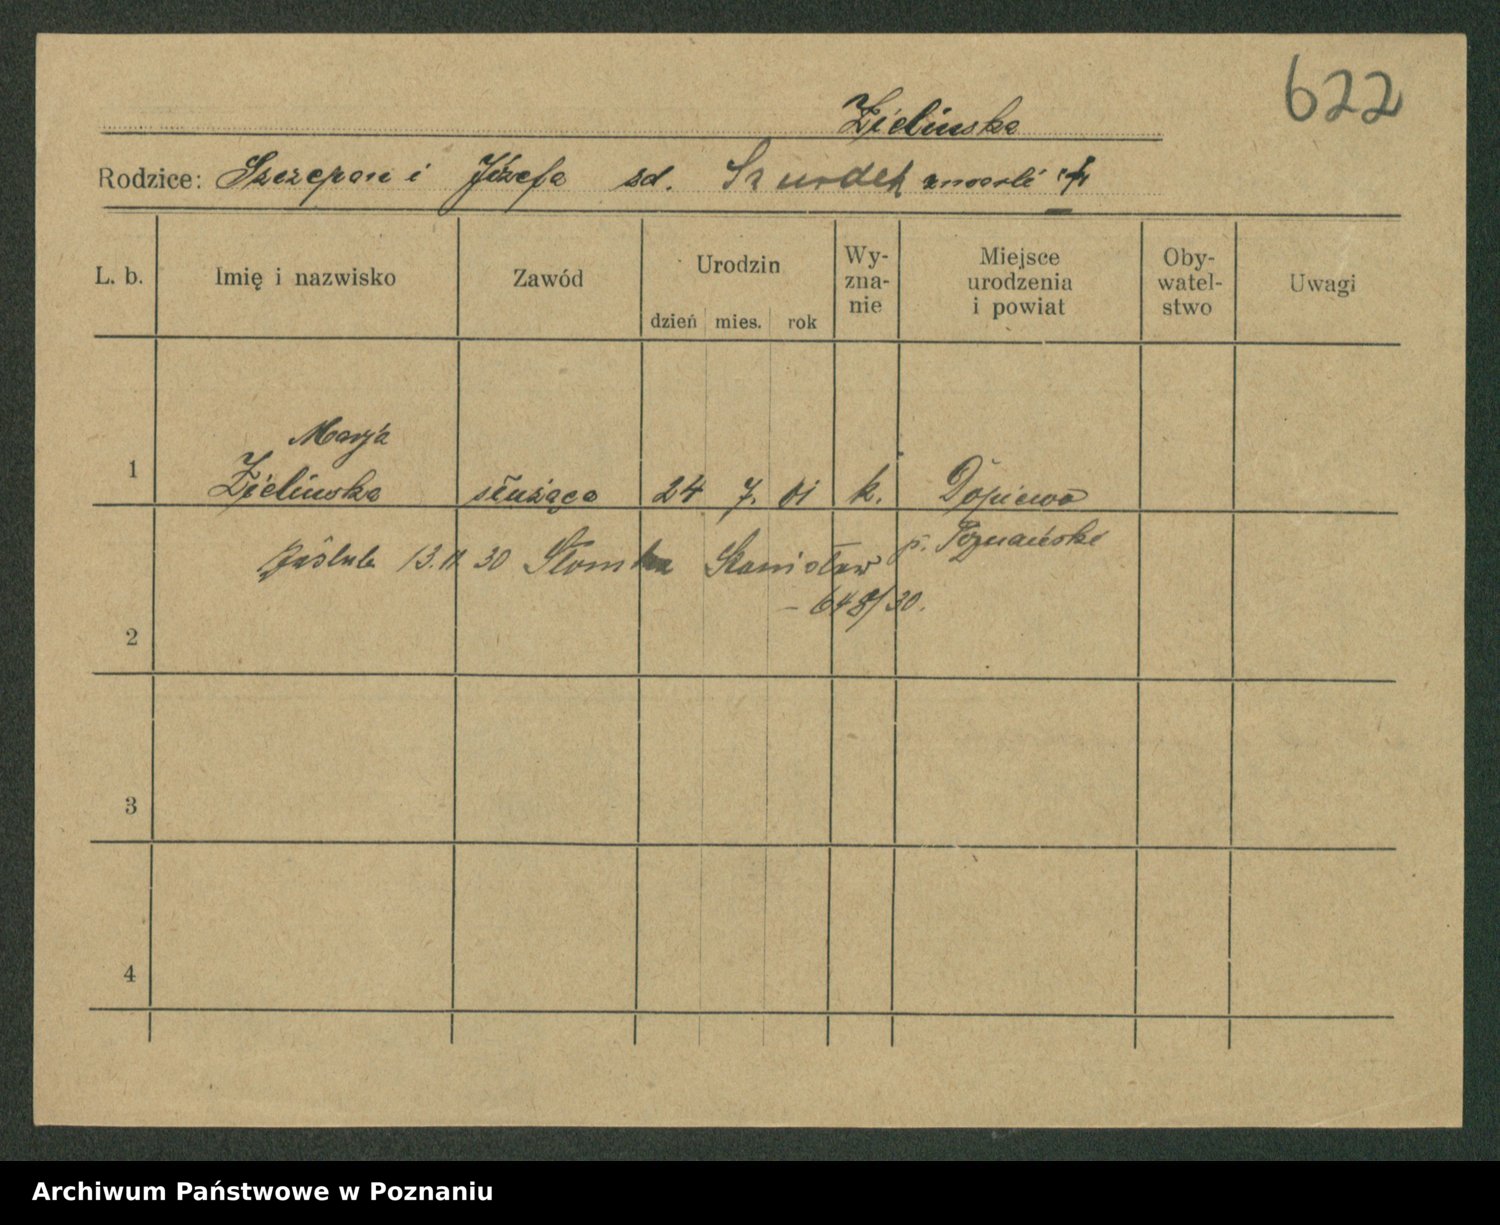 622
Zielinska
Rodzice: Szczepan i Józefa zd. Szurdek zmarli
L. b. Imię i nazwisko Zawód Urodzin dzień mies. rok Wy-zna-nie Miejsce urodzenia i powiat Oby-watel-stwo Uwagi
Marja
1 Zielinska służąca 24 7. 01 k. Dopiewo
p. Poznański
zaślub. 13.11.30 Słomka Stanisław
– 648/30.
2
3
4
Archiwum Państwowe w Poznaniu